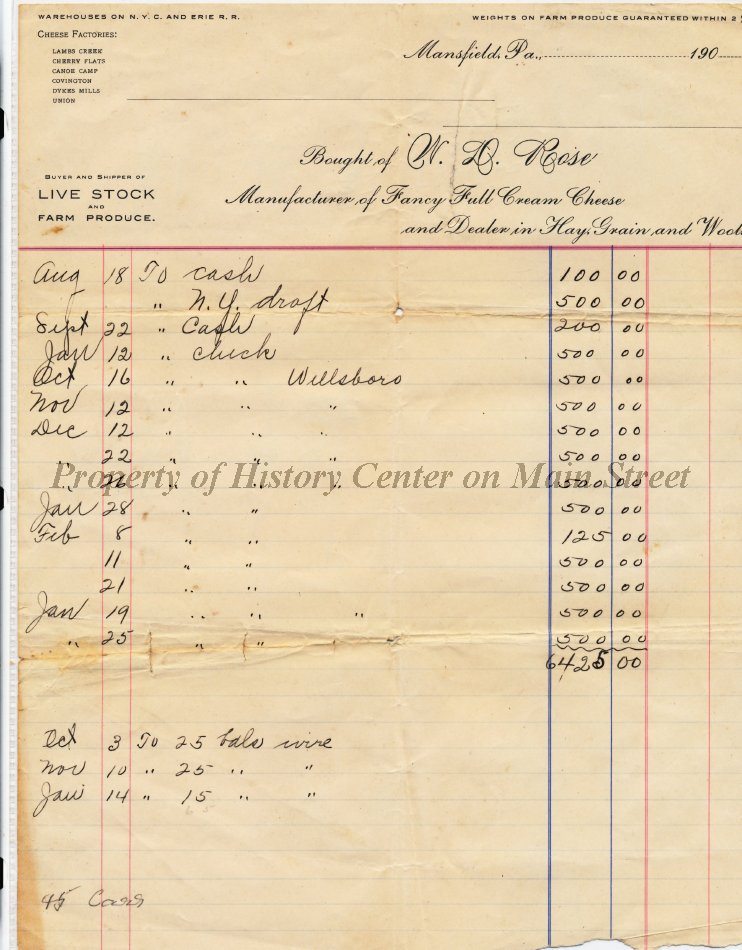 WAREHOUSES ON N. Y. C. AND ERIE R. R.
WEIGHTS ON FARM PRODUCE GUARANTEED WITHIN 2
CHEESE FACTORIES:
LAMBS CREEK
CHERRY FLATS
CANOE CAMP
COVINGTON
DYKES MILLS
UNION
Mansfield, Pa., 190
Bought of W. D. Rose
BUYER AND SHIPPER OF
LIVE STOCK
AND
FARM PRODUCE.
Manufacturer of Fancy Full Cream Cheese
and Dealer in Hay, Grain, and Wool
Aug 18 To cash 100 00
" N.Y. draft 500 00
Sept 22 " Cash 200 00
Jan 12 " check 500 00
Oct 16 " " Willsboro 500 00
Nov 12 " " " 500 00
Dec 12 " " 500 00
22 " " " 500 00
" 26 " " " 500 00
Jan 28 " " 500 00
Feb 8 " " 125 00
11 " " 500 00
21 " " 500 00
Jan 19 " " " 500 00
" 25 " " " 500 00
6425 00
Property of History Center on Main Street
Oct 3 To 25 bals wire
Nov 10 " 25 " "
Jan 14 " 15 " "